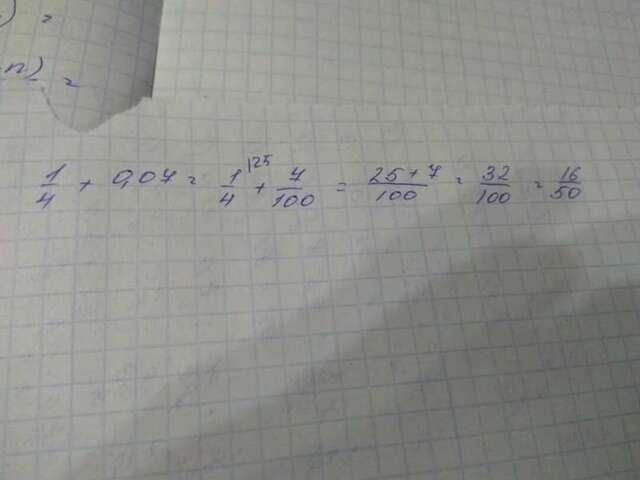 ) =
n) =
1/4 + 0,07 = 1/4 |25 + 7/100 = 25+7/100 = 32/100 = 16/50